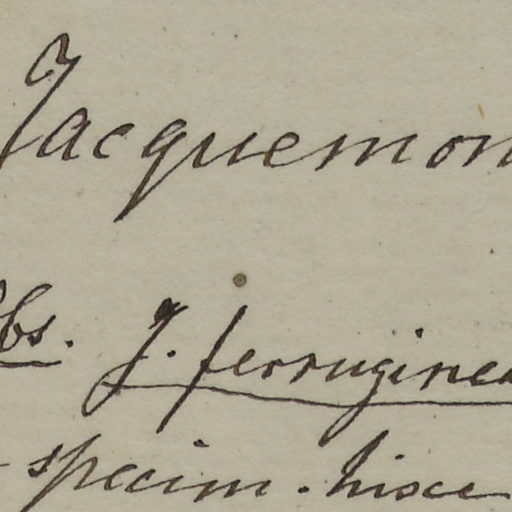 Jacquemon
Obs. J. ferruginea
specim. hisce